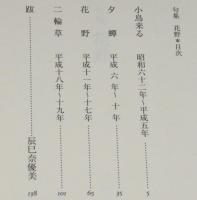 句集 花野＊目次
小鳥来る 昭和六十二年～平成五年 5
夕蟬 平成六年～十年 35
花野 平成十一年～十七年 65
二輪草 平成十八年～十九年 101
跋 辰巳奈優美 198